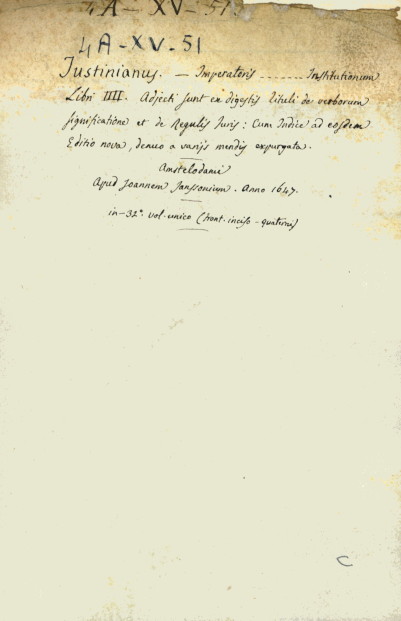 4A-XV-51
4A-XV-51
Justinianus. — Imperatoris ....... Institutionum
Libri IIII. Adjecti sunt ex digestis tituli de verborum
significatione et de Regulis Juris: Cum Indice ad eosdem
Editio nova, denuo a varijs mendis expurgata.
Amstelodami
Apud Joannem Janssonium. Anno 1647.
in-32° vol. unico (front. inciso -
C